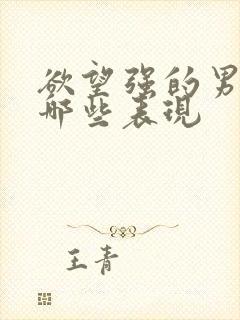 欲望强的男
那些表现
王青